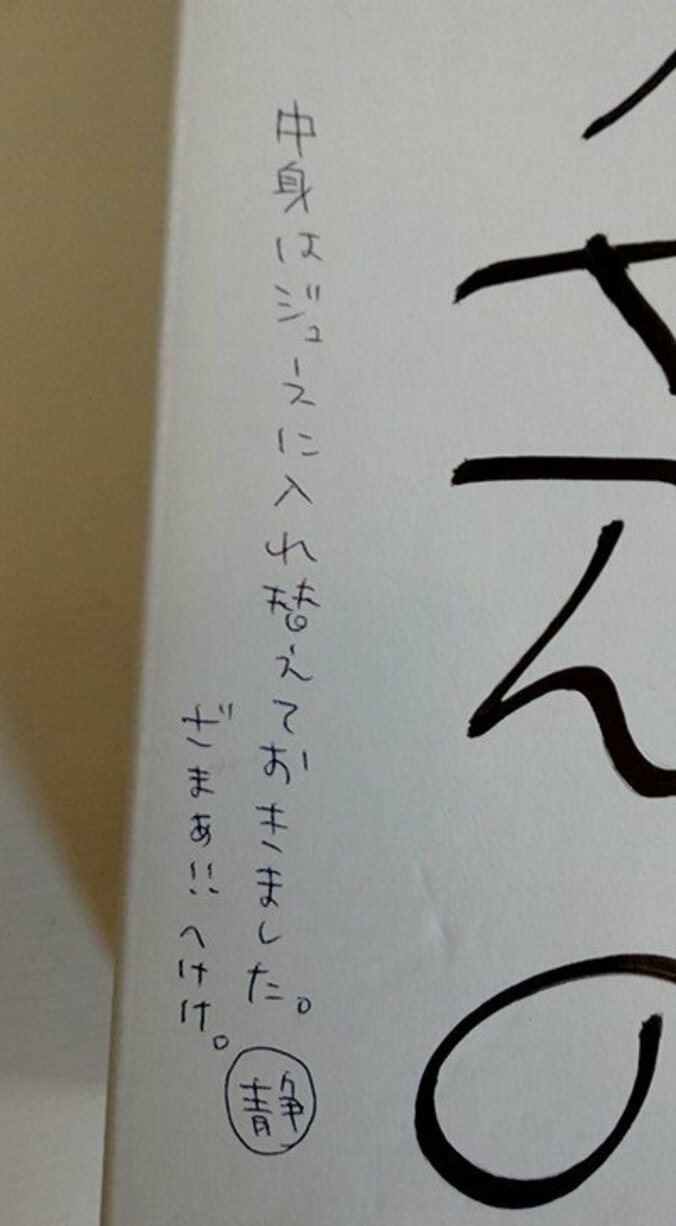 中身はジュースに入れ替えておきました。
ざまぁ!! へけけ。
静
んの